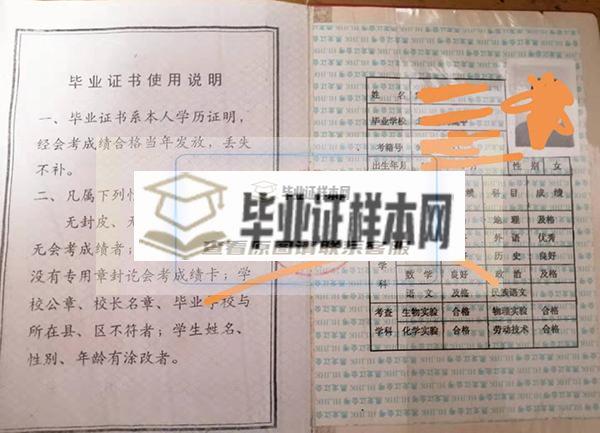 毕业证书使用说明
一、毕业证书系本人学历证明，
经会考成绩合格当年发放，丢失
不补。
二、凡属下列
无封皮、
无会考成绩者；
没有专用章封讫会考成绩卡；学
校公章、校长名章、毕业学校与
所在县、区不符者；学生姓名、
性别、年龄有涂改者。
毕业证样本网
查看原图请联系客服
姓 名
毕业学校
考籍号
出生年月 月 性别 女
科目 成绩
地理 及格
外语 优秀
学 历史 良好
科 数学 良好 政治 及格
语文 及格 民族语文
考查 生物实验 合格 物理实验 合格
学科 化学实验 合格 劳动技术 合格